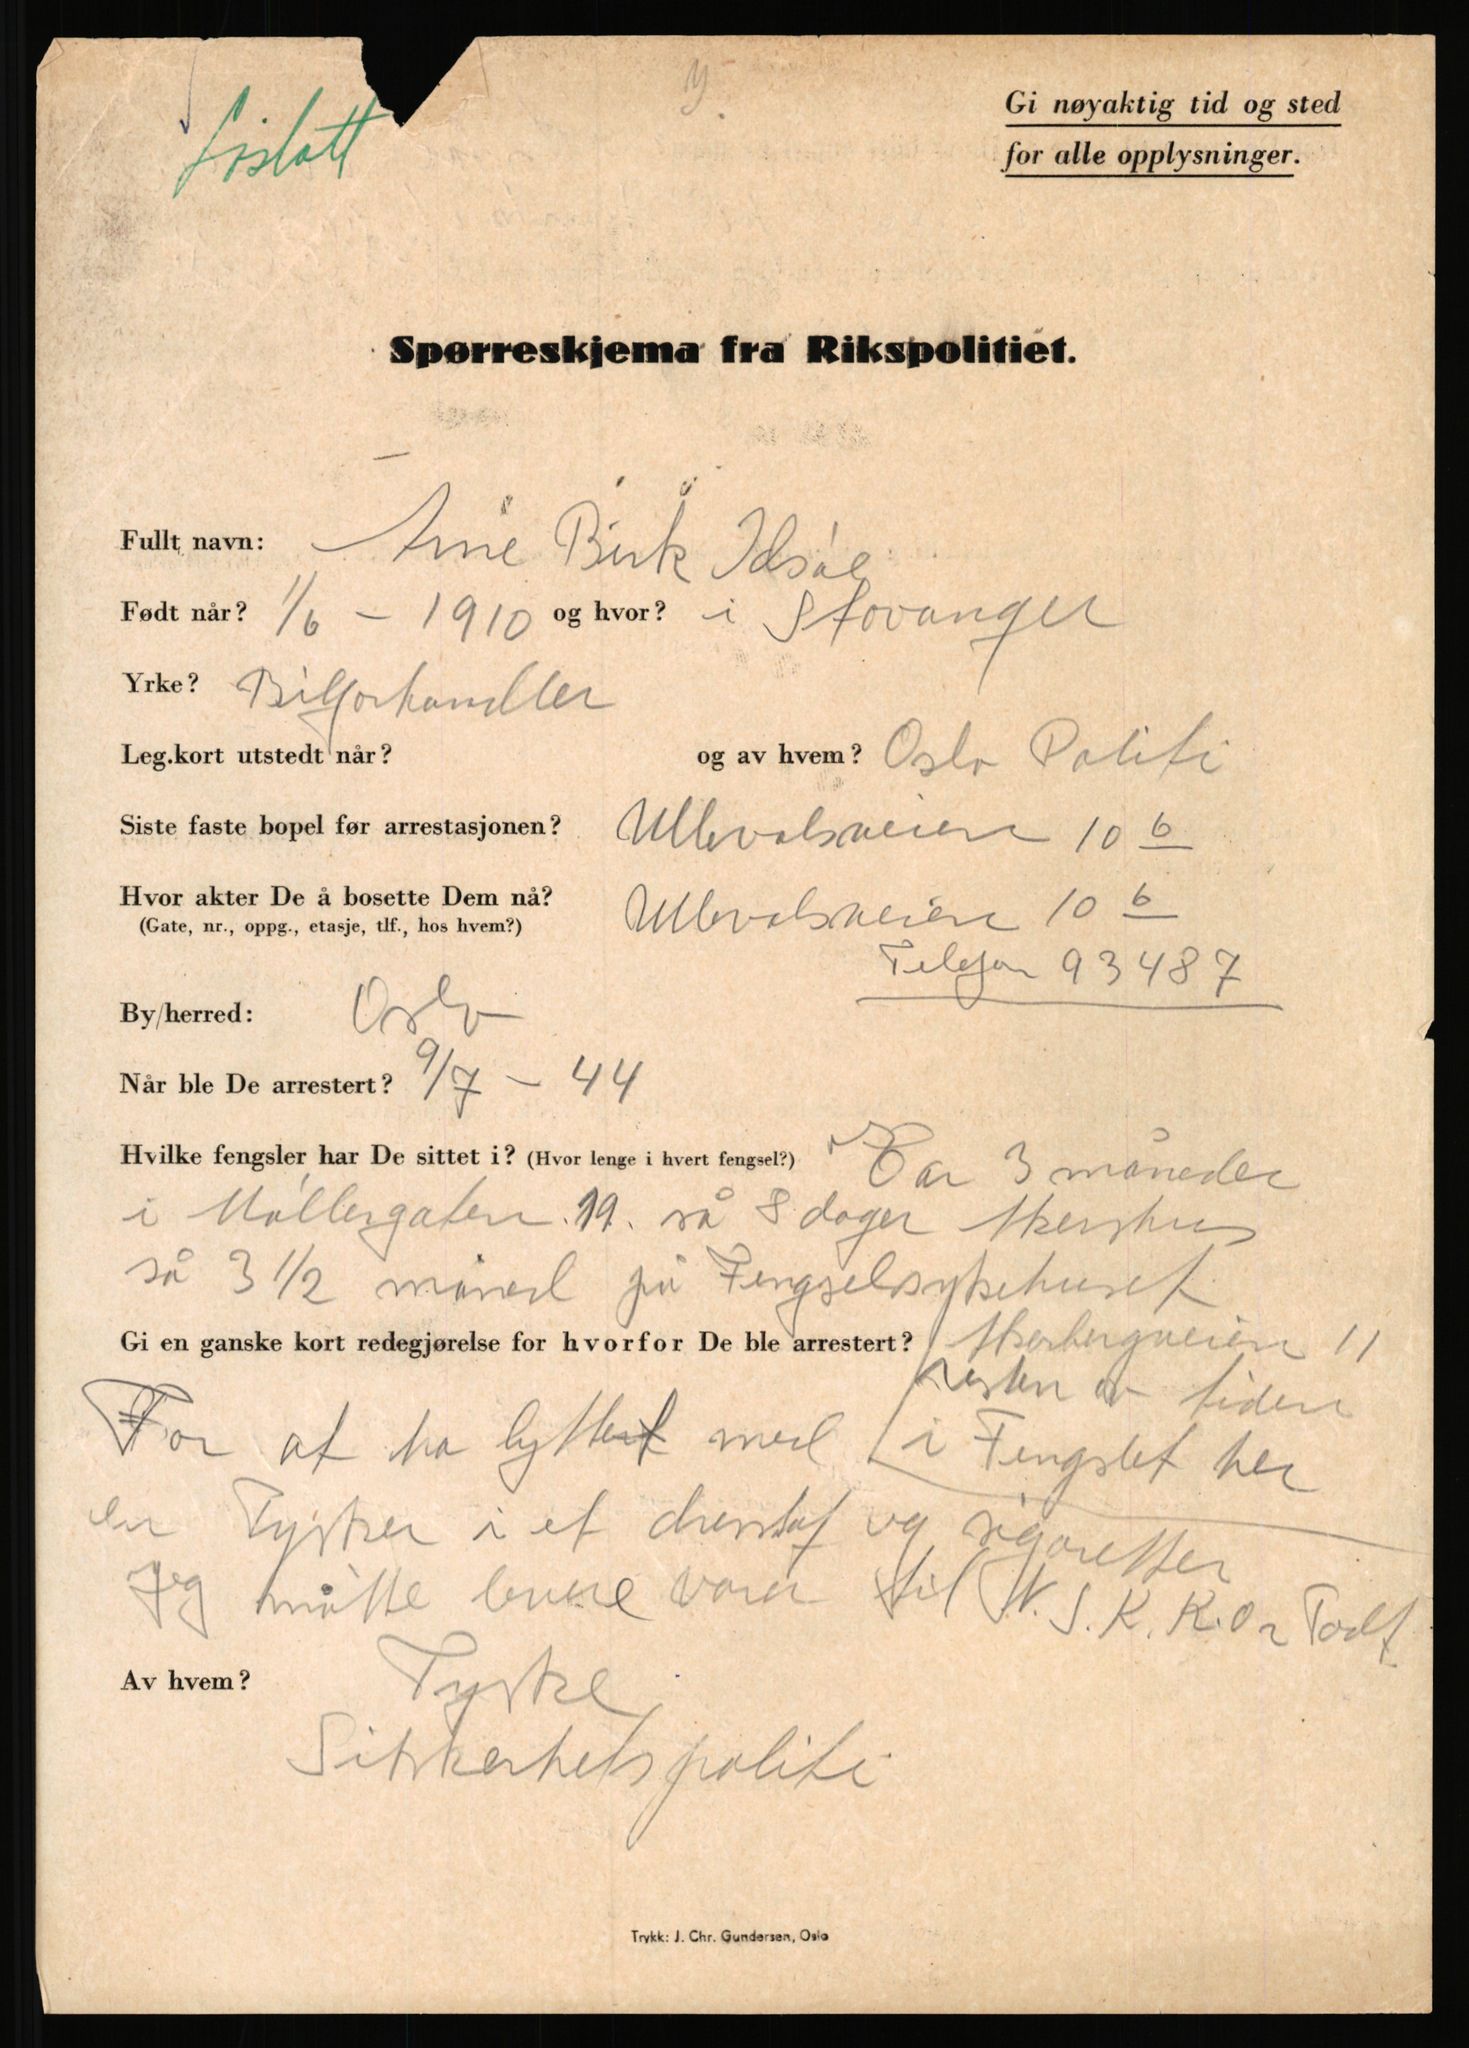 Løslatt
Gi nøyaktig tid og sted
for alle opplysninger.
Spørreskjema fra Rikspolitiet.
Fullt navn: Arne Birk Idsøe
Født når? 1/6 - 1910 og hvor? i Stavanger
Yrke? Bilforhandler
Leg.kort utstedt når? og av hvem? Oslo Politi
Siste faste bopel før arrestasjonen? Ullevalsveien 10 b
Hvor akter De å bosette Dem nå? Ullevalsveien 10 b
(Gate, nr., oppg., etasje, tlf., hos hvem?)
Telefon 93487
By/herred: Oslo
Når ble De arrestert? 9/7 - 44
Hvilke fengsler har De sittet i? (Hvor lenge i hvert fengsel?) Car 3 måneder
i Møllergaten 19. så 8 dager Akershus
så 3 1/2 måned på Fengselssykehuset
Gi en ganske kort redegjørelse for hvorfor De ble arrestert? Akerbergveien 11
resten av tiden
i Fengslet her
For at ha byttet med
en Tysker i et og sigaretter
Jeg måtte levere varer til N.S.K.K. Or Todt
Av hvem? Tyske
Sikkerhetspoliti
Trykk: J. Chr. Gundersen, Oslo